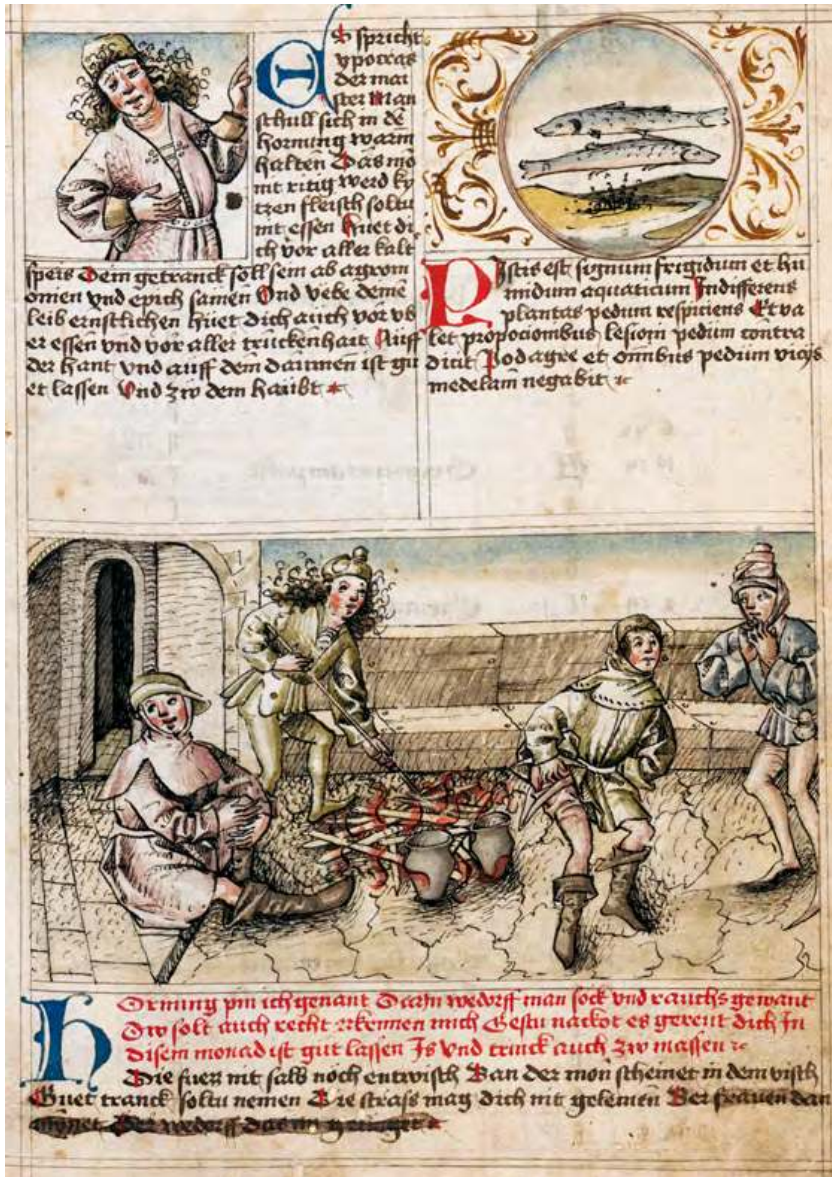 Es spricht
ypocras
der mai
ster Man
schull sich in dem
hornung warm
halten Das mo
nit ritig werd ky
tzen fleisch soltu
nit essen Huet di
ch vor aller kalt
speis Dein getranck soll sein ab agrom
omen vnd epich samen Vnd vebe deine
leib ernstlichen huet dich auch vor vb
er essen vnd vor aller truckenhait Auff
der hant vnd auff dem daumen ist gu
et lassen Vnd zw dem haubt
Piscis est signum frigidum et hu
midum aquaticum Indifferens
plantas pedum respiciens Et va
let propocionibus lesionem pedum contra
dicit Podagre et omnibus pedum vicijs
medelam negabit
Hornung pin ich genant Darin wedorff man sock vnd rauchs gewant
Dw solt auch recht erkennen mich Gestu nackot es gereut dich In
disem monad ist gut lassen Is vnd trinck auch zw massen
Die fuez nit salb noch entwisch Wan der mon scheinet in dem visch
Guet tranck soltu nemen Die strass mag dich nit gelemen Der frauen dan